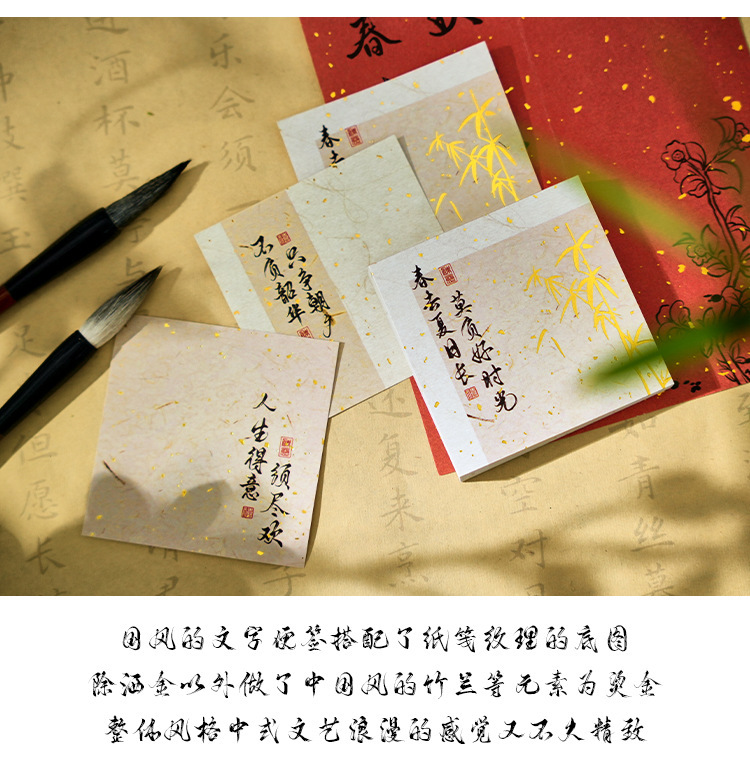 乐会须
进酒杯莫
春
春去
只争朝夕
不负韶华
春去夏日长
莫负好时光
人生得意
须尽欢
但愿长
还复来烹
空对
如青丝
国风的文字便签搭配了纸笺纹理的底图
除洒金以外做了中国风的竹兰等元素为烫金
整体风格中式文艺浪漫的感觉又不失精致